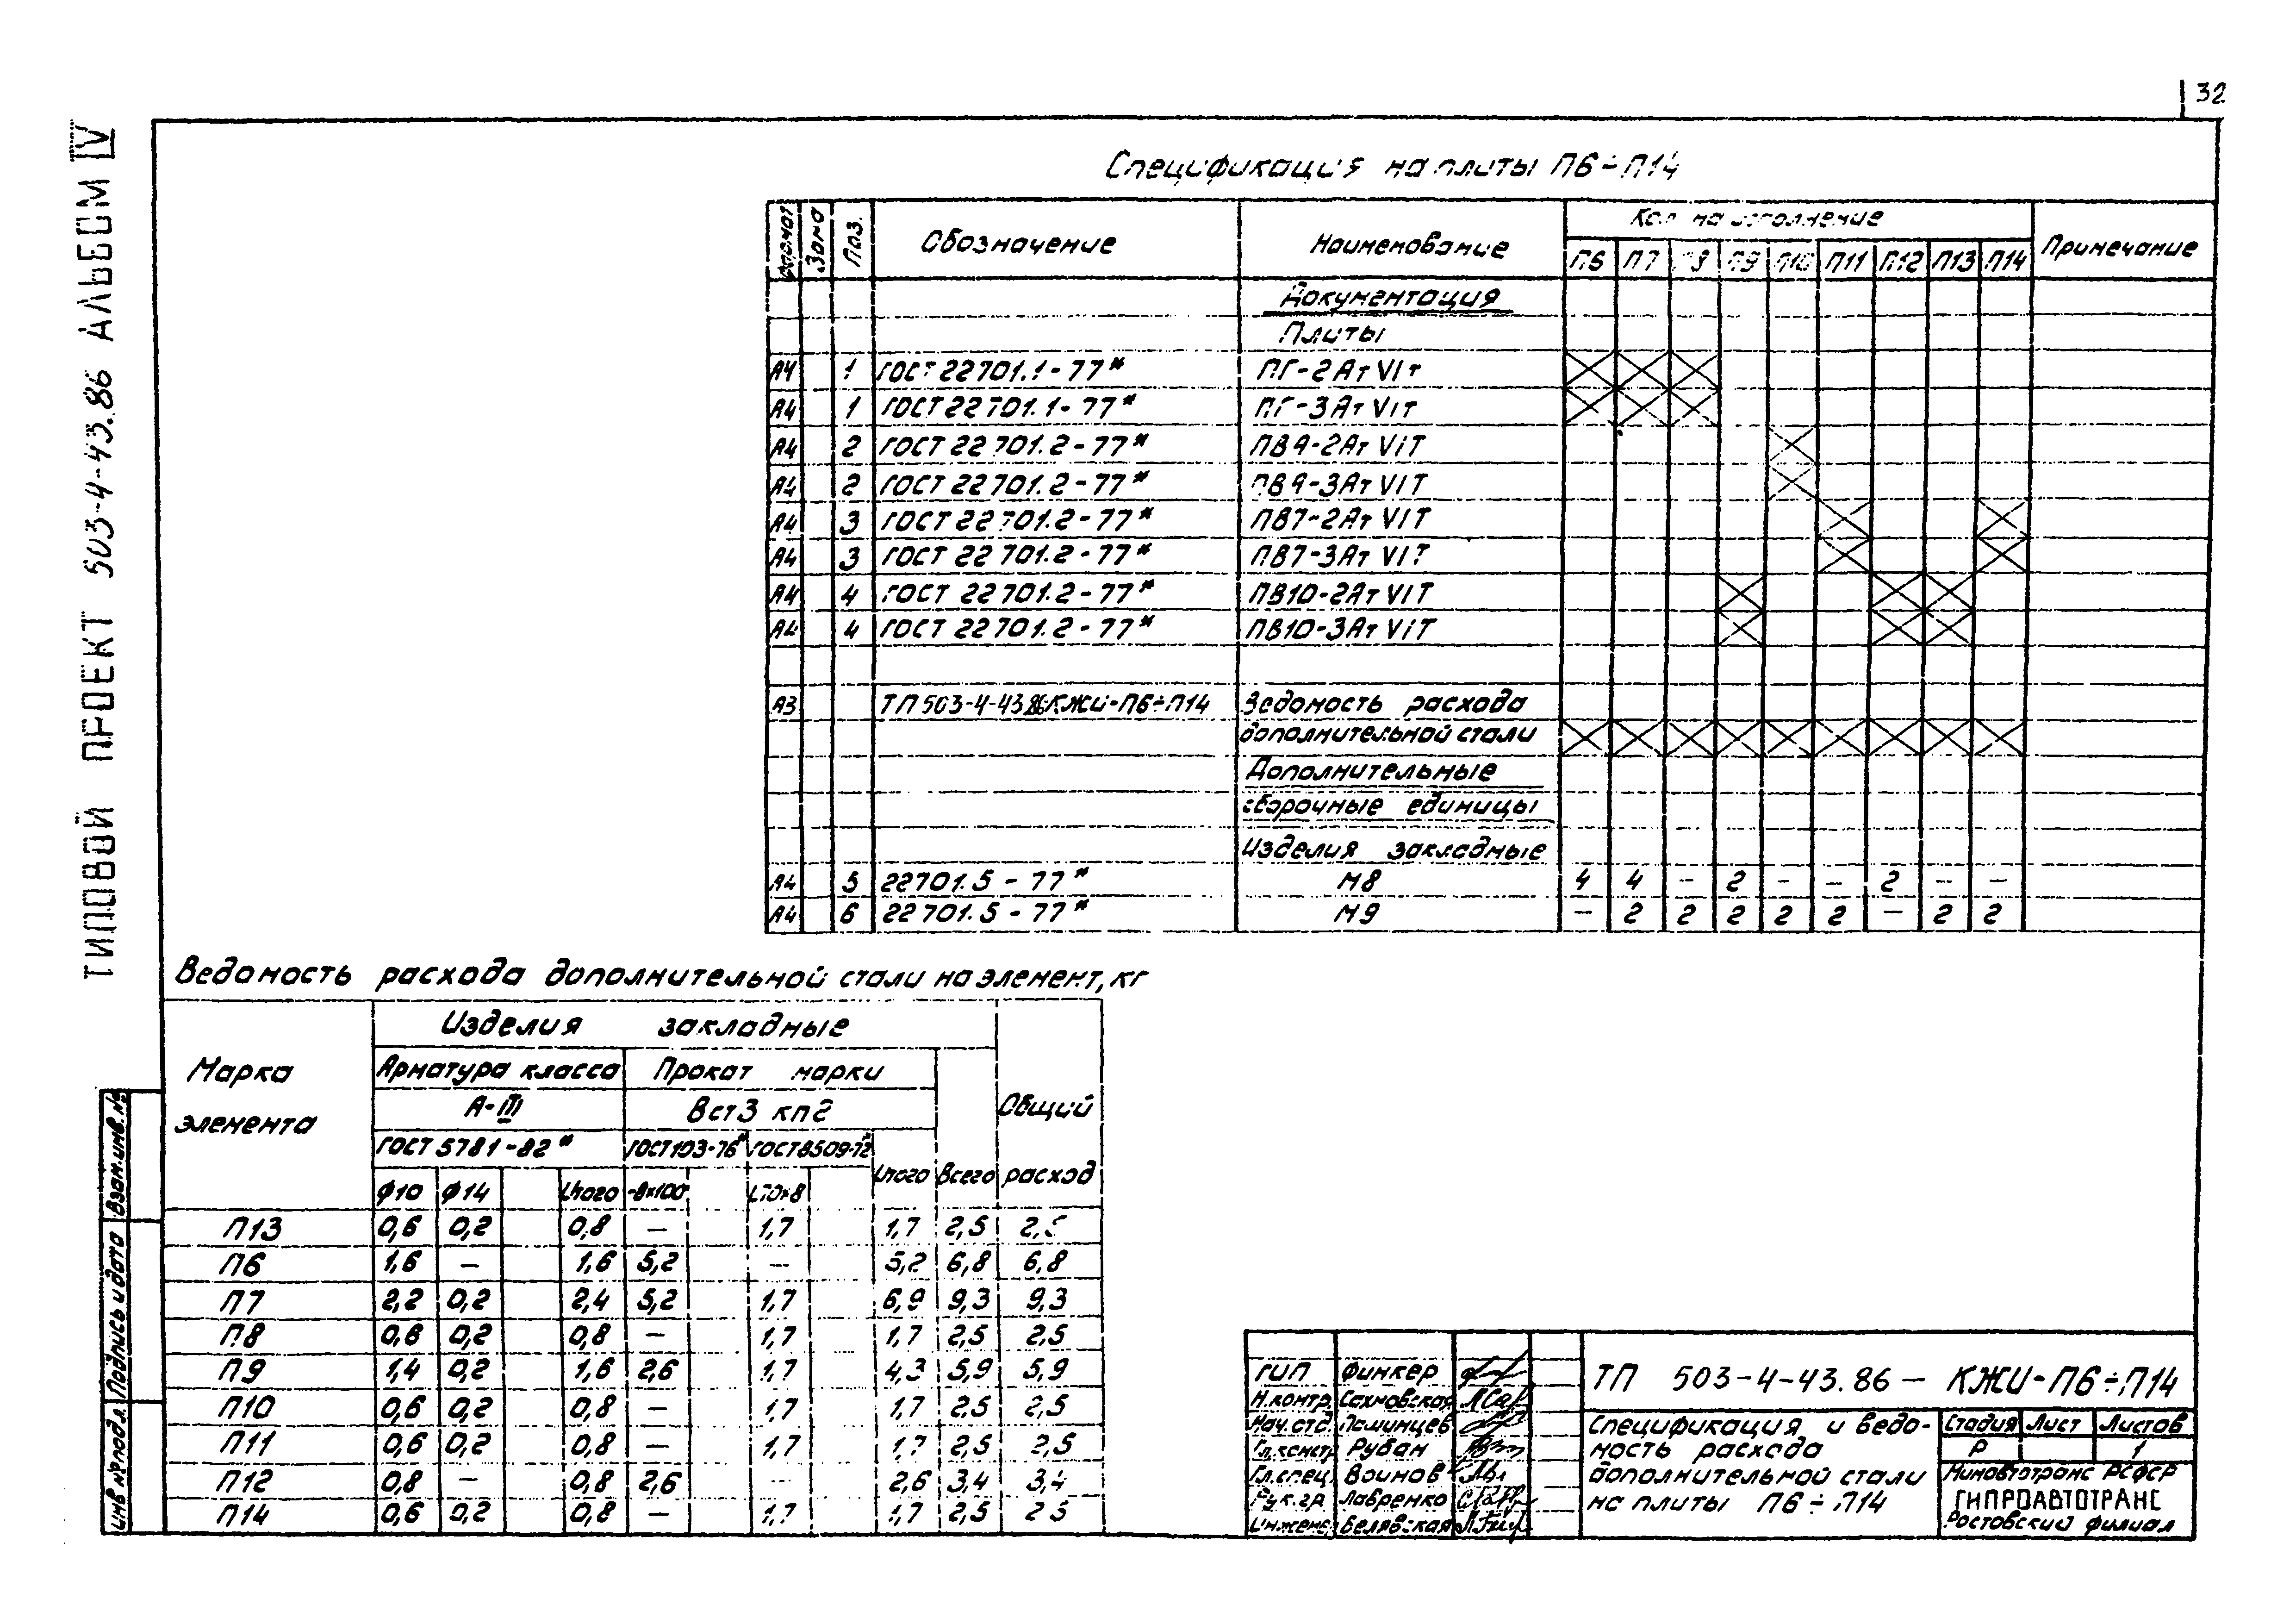 32
ТИПОВОЙ ПРОЕКТ 503-4-43.86 АЛЬБОМ IV
Спецификация на плиты П6÷П14
Формат Зона Поз. Обозначение Наименование Кол. на исполнение Примечание
П6 П7 П8 П9 П10 П11 П12 П13 П14
Документация
Плиты
А4 1 ГОСТ 22701.1-77* ПГ-2Ат VIт
А4 1 ГОСТ 22701.1-77* ПГ-3Ат VIт
А4 2 ГОСТ 22701.2-77* ПВ4-2Ат VIT
А4 2 ГОСТ 22701.2-77* ПВ4-3Ат VIT
А4 3 ГОСТ 22701.2-77* ПВ7-2Ат VIT
А4 3 ГОСТ 22701.2-77* ПВ7-3Ат VIT
А4 4 ГОСТ 22701.2-77* ПВ10-2Ат VIT
А4 4 ГОСТ 22701.2-77* ПВ10-3Ат VIT
А3 ТП 503-4-43.86 КЖИ-П6÷П14 Ведомость расхода
дополнительной стали
Дополнительные
сборочные единицы
Изделия закладные
А4 5 22701.5-77* М8 4 4 – 2 – – 2 – –
А4 6 22701.5-77* М9 – 2 2 2 2 2 – 2 2
Ведомость расхода дополнительной стали на элемент, кг
Марка элемента
Изделия закладные
Общий расход
Арматура класса Прокат марки
А-III Вст3 кп2
ГОСТ 5781-82* ГОСТ103-76* ГОСТ8509-72*
Ф10 Ф14 Итого -8×100 L70×8 Итого Всего
П13 0,6 0,2 0,8 – 1,7 1,7 2,5 2,5
П6 1,6 – 1,6 5,2 – 5,2 6,8 6,8
П7 2,2 0,2 2,4 5,2 1,7 6,9 9,3 9,3
П8 0,6 0,2 0,8 – 1,7 1,7 2,5 2,5
П9 1,4 0,2 1,6 2,6 1,7 4,3 5,9 5,9
П10 0,6 0,2 0,8 – 1,7 1,7 2,5 2,5
П11 0,6 0,2 0,8 – 1,7 1,7 2,5 2,5
П12 0,8 – 0,8 2,6 – 2,6 3,4 3,4
П14 0,6 0,2 0,8 – 1,7 1,7 2,5 2,5
Инв № подл. Подпись и дата Взам.инв.№
ГИП Финкер
Н.контр. Сахновская
Нач.отд.
Гл.констр. Рубан
Гл.спец. Воинов
Рук.гр. Лавренко
Инженер Белявская
ТП 503-4-43.86 – КЖИ-П6÷П14
Спецификация и ведо-
мость расхода
дополнительной стали
на плиты П6÷П14
Стадия Лист Листов
Р 1
Минавтотранс РСФСР
ГИПРОАВТОТРАНС
Ростовский филиал